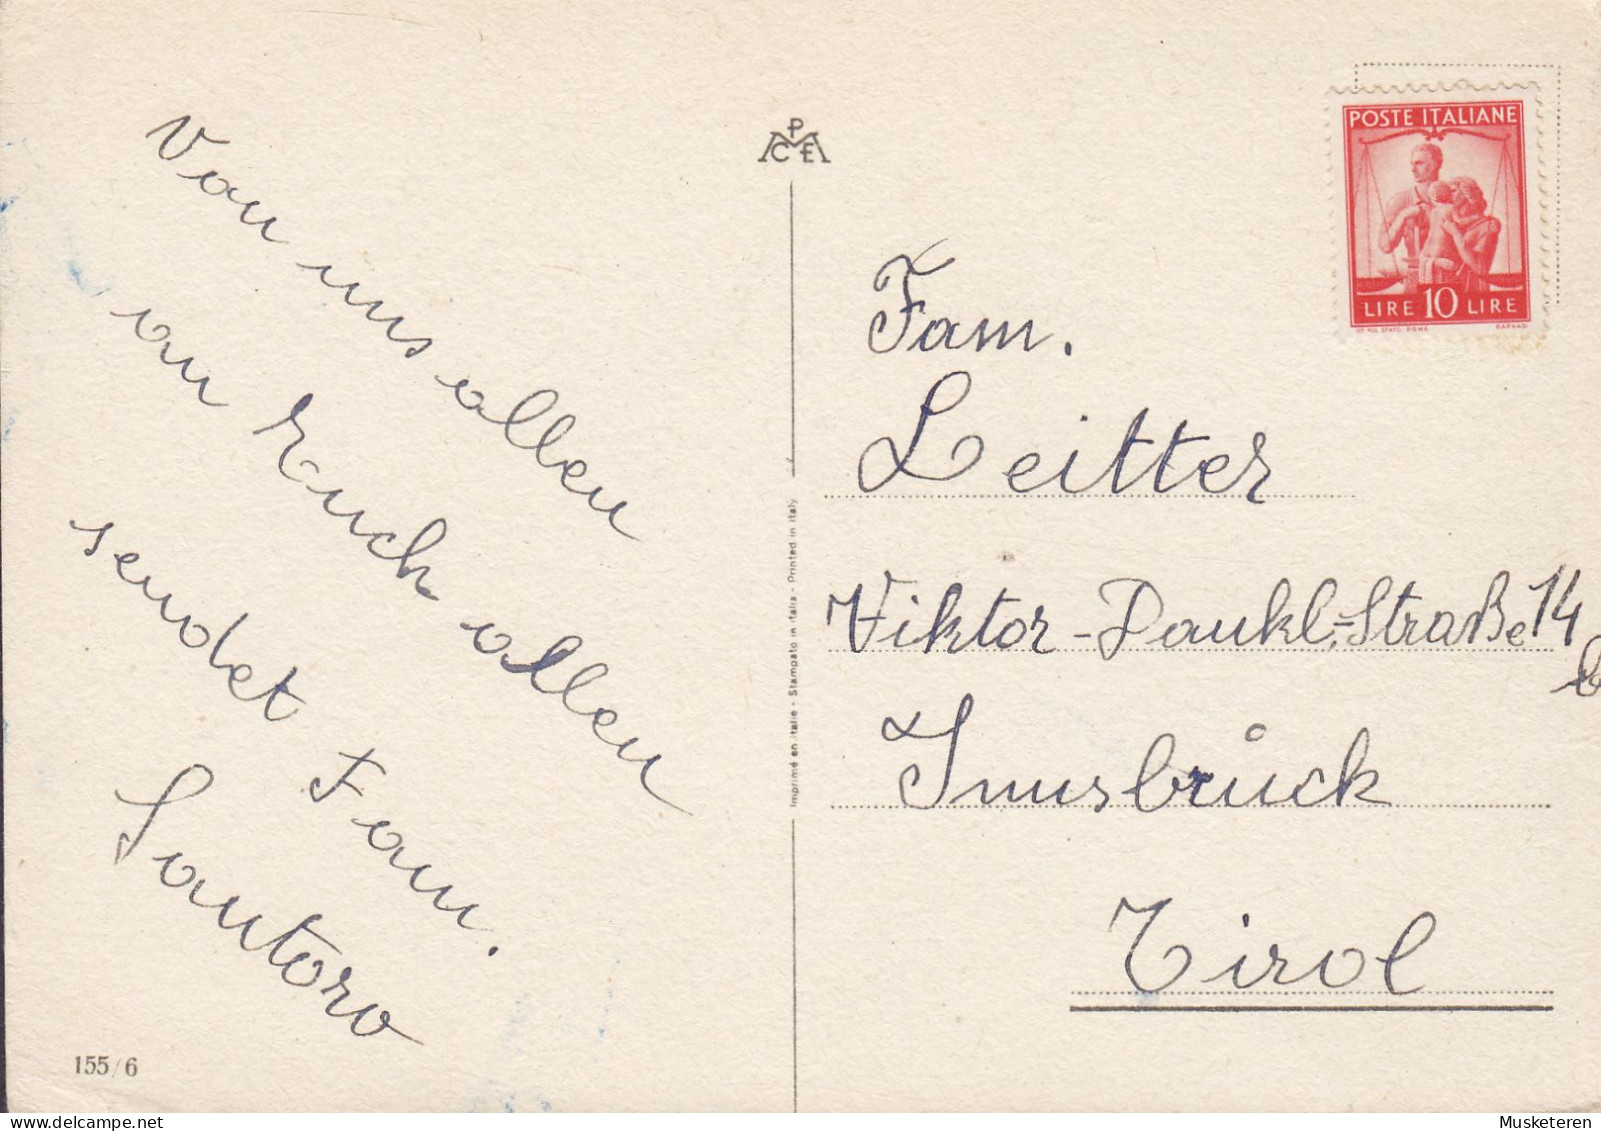 Von uns allen
an Euch allen
sendet Fam.
Santoro
155/6
P
C E
Imprimé en Italie - Stampato in Italia - Printed in Italy
POSTE ITALIANE
LIRE 10 LIRE
Fam.
Leitter
Viktor-Dankl-Straße 14
b
Innsbruck
Tirol
www.delcampe.net
Musketeren